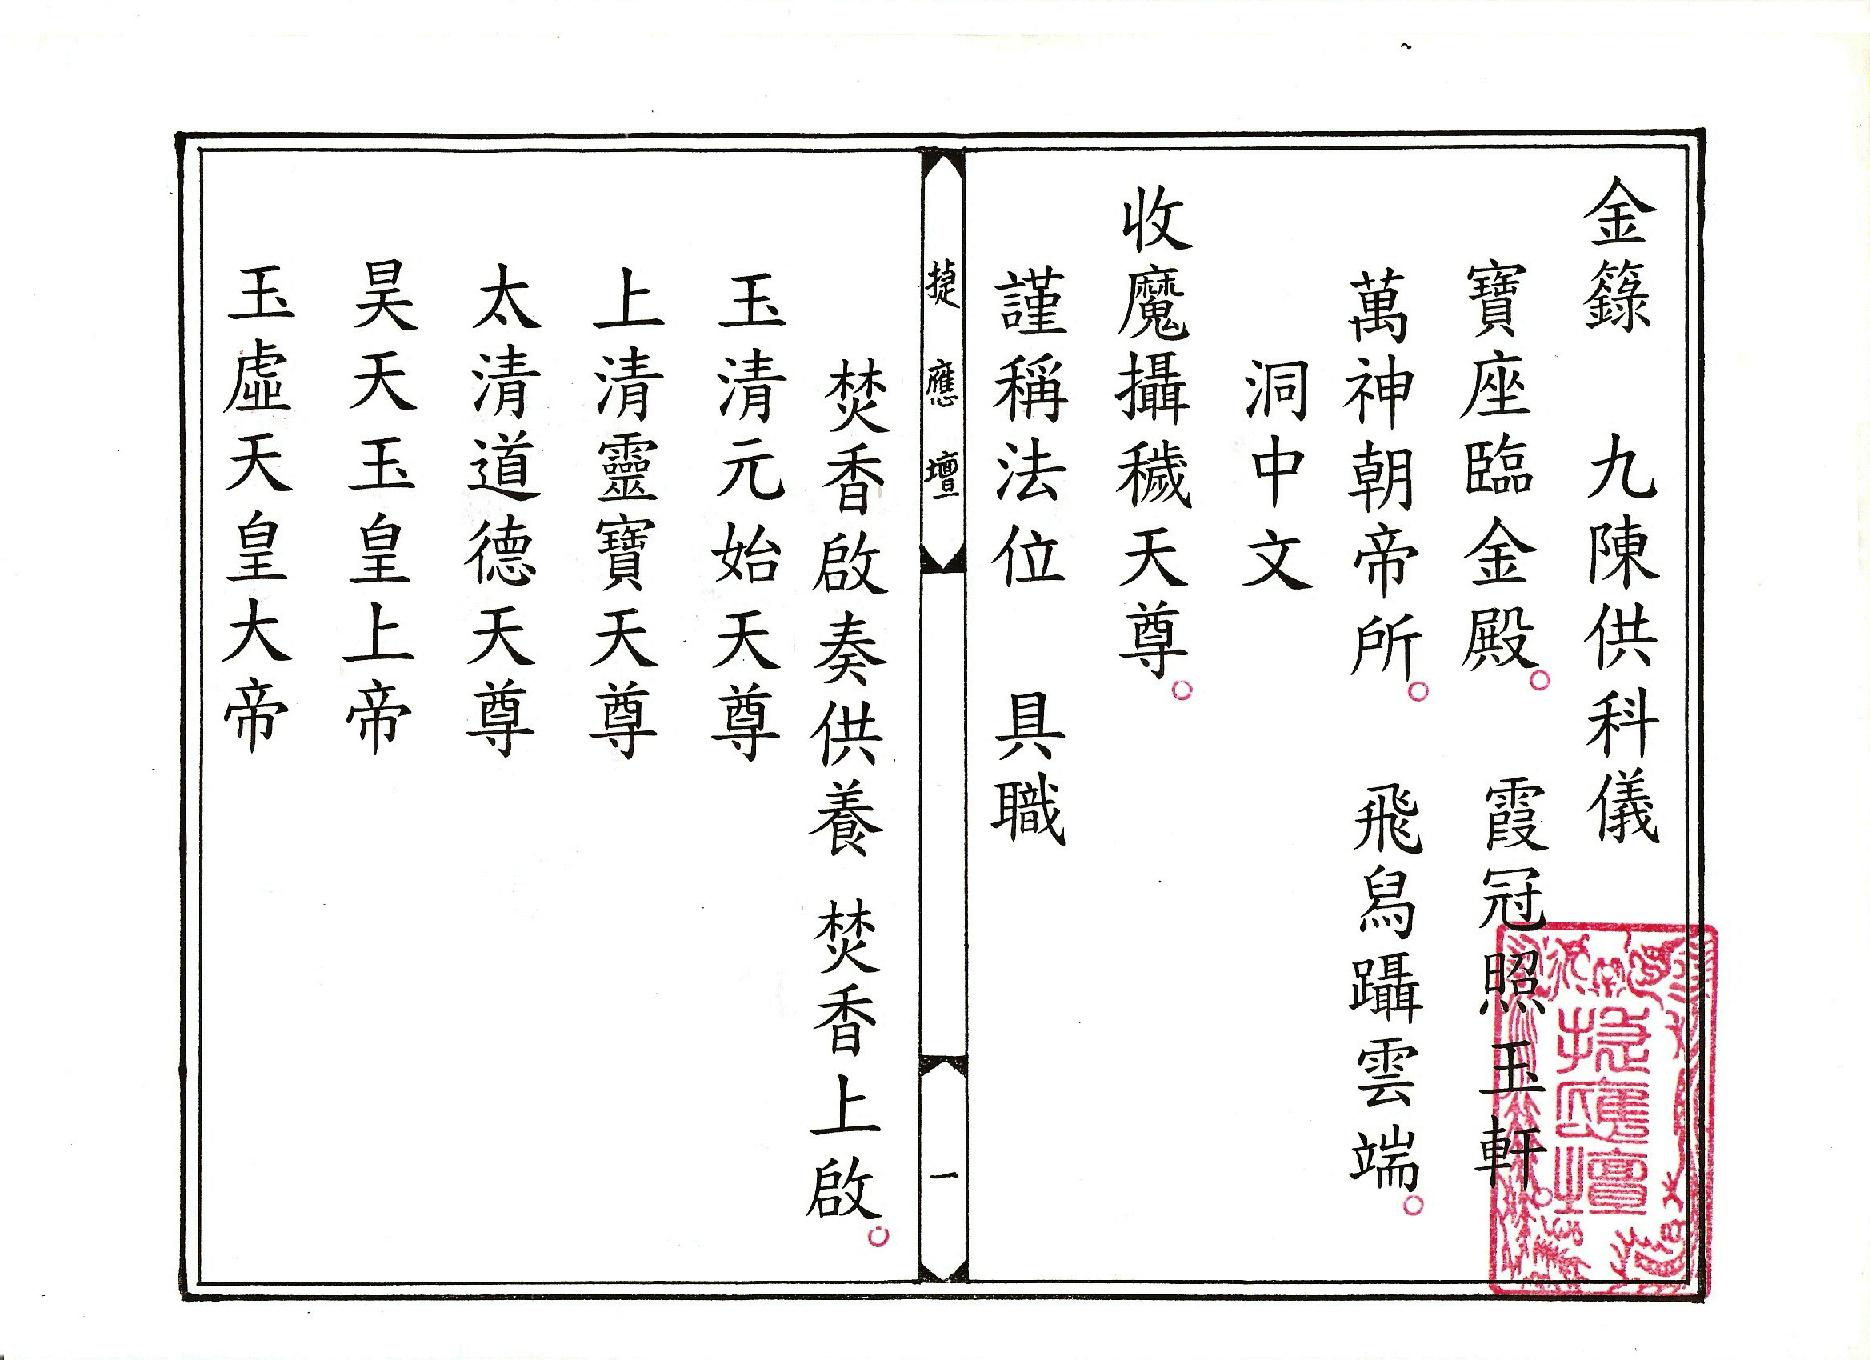 金籙　九陳供科儀
寶座臨金殿。霞冠照玉軒。
萬神朝帝所。飛舄躡雲端。
洞中文
收魔攝穢天尊。
謹稱法位　具職
捷應壇
一
焚香啟奏供養 焚香上啟。
玉清元始天尊
上清靈寶天尊
太清道德天尊
昊天玉皇上帝
玉虛天皇大帝
捷應壇